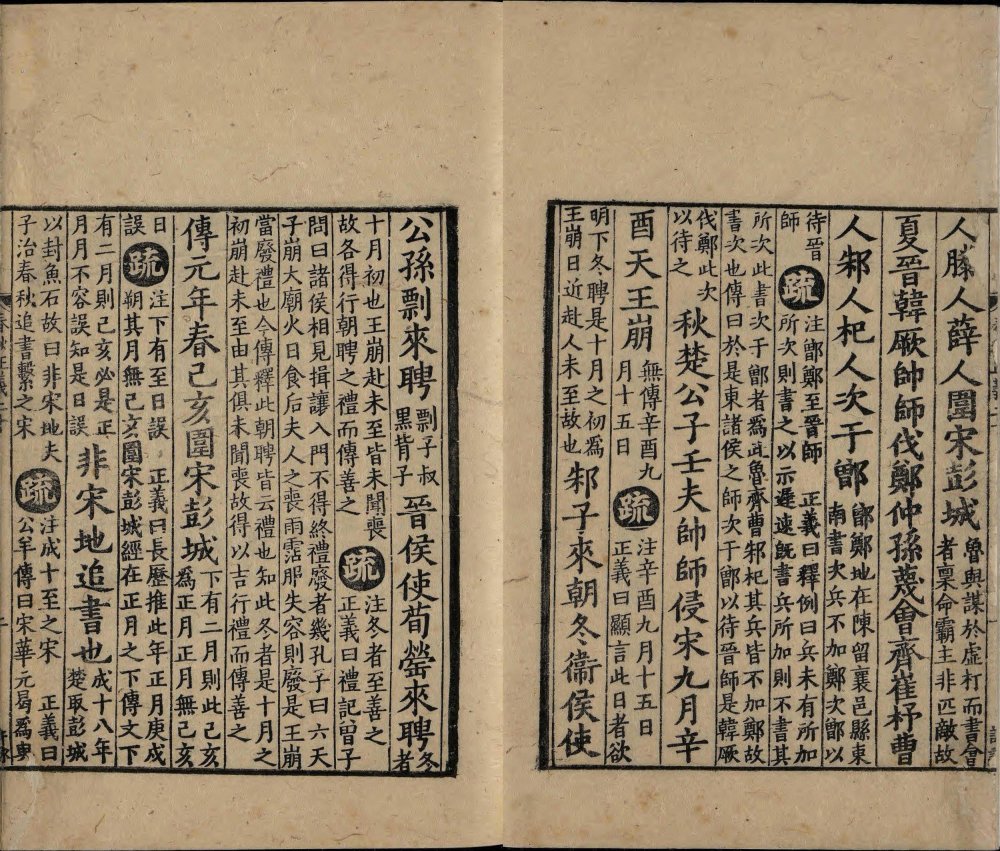 人滕人薛人圍宋彭城魯與謀於虛朾而書會者稟命霸主非匹敵故
夏晉韓厥帥師伐鄭仲孫蔑會齊崔杼曹
人邾人杞人次于鄫鄫鄭地在陳留襄邑縣東南書次兵不加鄭次鄫以
待晉師疏注鄫鄭至晉師 正義曰釋例曰兵未有所加所次則書之以示遲速旣書兵所加則不書其
所次此書次于鄫者爲武魯齊曹邾杞其兵皆不加鄭故書次也傳曰於是東諸侯之師次于鄫以待晉師是韓厥
伐鄭此次以待之秋楚公子壬夫帥師侵宋九月辛
酉天王崩無傳辛酉九月十五日疏注辛酉九月十五日 正義曰顯言此日者欲
明下冬聘是十月之初爲王崩日近赴人未至故也邾子來朝冬衞侯使
公孫剽來聘剽子叔黑背子晉侯使荀罃來聘冬者
十月初也王崩赴未至皆未聞喪故各得行朝聘之禮而傳善之疏注冬者至善之 正義曰禮記曾子
問曰諸侯相見揖讓入門不得終禮廢者幾孔子曰六天子崩大廟火日食后夫人之喪雨霑服失容則廢是王崩
當廢禮也今傳釋此朝聘皆云禮也知此冬者是十月之初崩赴未至由其俱未聞喪故得以吉行禮而傳善之
傳元年春己亥圍宋彭城下有二月則此己亥爲正月正月無己亥
日誤疏注下有至日誤 正義曰長歷推此年正月庚戌朔其月無己亥圍宋彭城經在正月之下傳文下
有二月則己亥必是正月月不容誤知是日誤非宋地追書也成十八年楚取彭城
以封魚石故曰非宋地夫子治春秋追書繫之宋疏注成十至之宋 正義曰公羊傳曰宋華元曷爲與